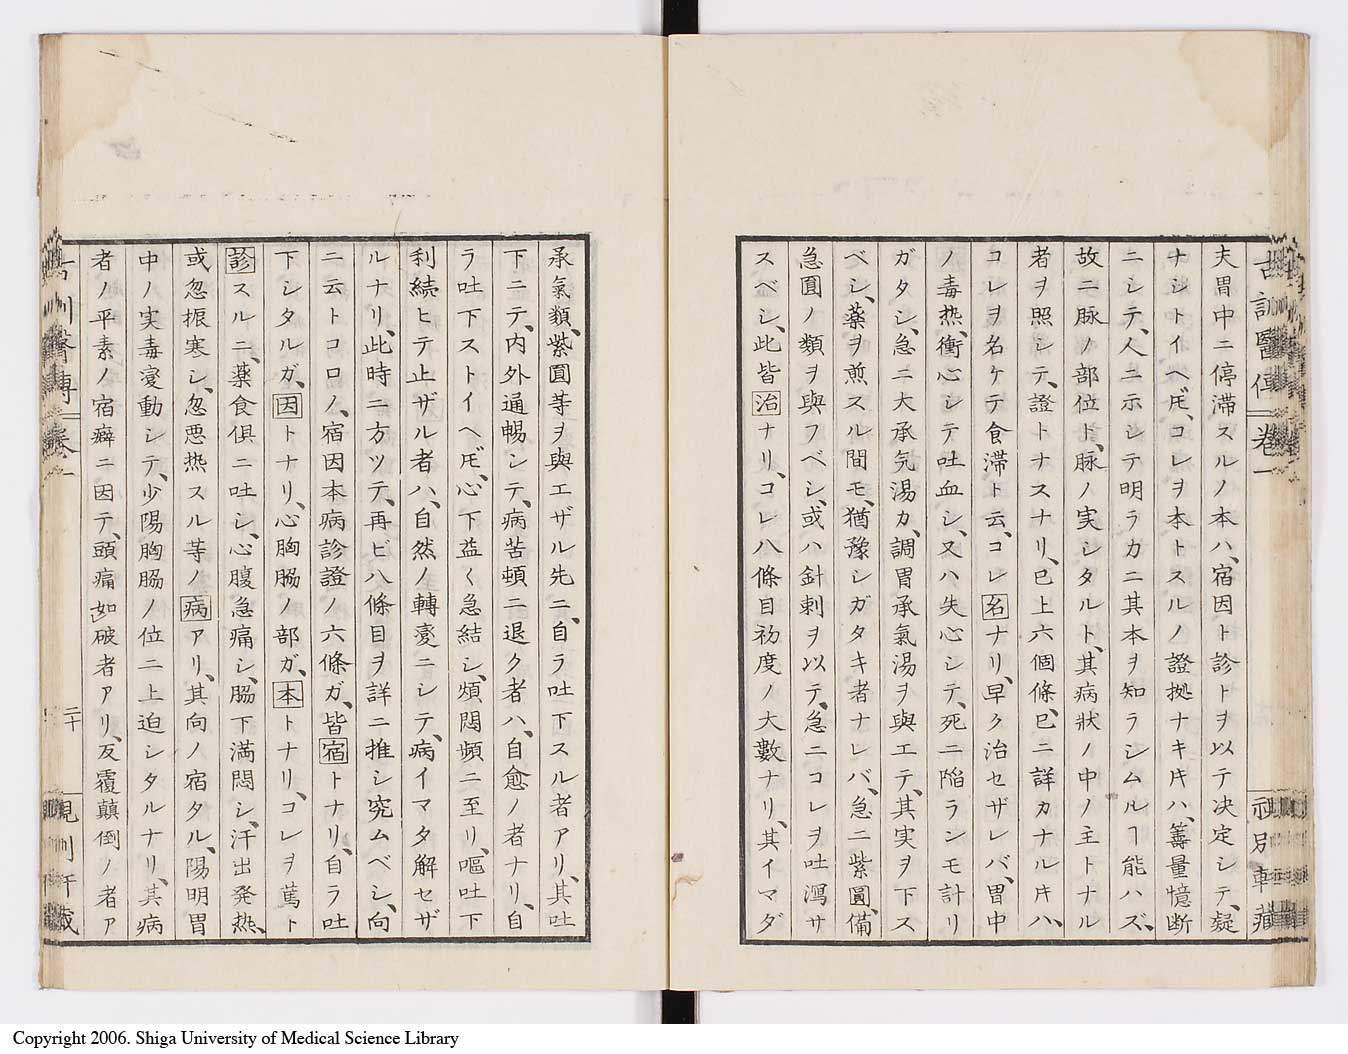 夫胃中ニ停滞スルノ本ハ、宿因ト診トヲ以テ決定シテ、疑
ナシトイヘ𪜈、コレヲ本トスルノ證拠ナキ片ハ、籌量憶断
ニシテ、人ニ示シテ明ラカニ其本ヲ知ラシムルヿ能ハズ、
故ニ脉ノ部位ト、脉ノ実シタルト、其病状ノ中ノ主トナル
者ヲ照シテ、證トナスナリ、已上六個條、已ニ詳カナル片ハ、
コレヲ名ケテ食滞ト云、コレ名ナリ、早ク治セザレバ、胃中
ノ毒热、衝心シテ吐血シ、又ハ失心シテ、死ニ陥ランモ計リ
ガタシ、急ニ大承気湯カ、調胃承氣湯ヲ與エテ、其実ヲ下ス
ベシ、薬ヲ煎スル間モ、猶豫シガタキ者ナレバ、急ニ紫圓、備
急圓ノ類ヲ與フベシ、或ハ針刺ヲ以テ、急ニコレヲ吐瀉サ
スベシ、此皆治ナリ、コレ八條目初度ノ大數ナリ、其イマダ
古訓醫傳 卷一
承氣類、紫圓等ヲ與エザル先ニ、自ラ吐下スル者アリ、其吐
下ニテ、内外通暢シテ、病苦頓ニ退ク者ハ、自愈ノ者ナリ、自
ラ吐下ストイヘ𪜈、心下益〱急結シ、煩悶頻ニ至リ、嘔吐下
利続ヒテ止ザル者ハ、自然ノ轉変ニシテ、病イマタ解セザ
ルナリ、此時ニ方ツテ、再ビ八條目ヲ詳ニ推シ究ムベシ、向
ニ云トコロノ、宿因本病診證ノ六條ガ、皆宿トナリ、自ラ吐
下シタルガ、因トナリ、心胸脇ノ部ガ、本トナリ、コレヲ篤ト
診スルニ、薬食倶ニ吐シ、心腹急痛シ、脇下満悶シ、汗出発热、
或忽振寒シ、忽悪热スル等ノ病アリ、其向ノ宿タル、陽明胃
中ノ実毒変動シテ、少陽胸脇ノ位ニ上迫シタルナリ、其病
者ノ平素ノ宿癖ニ因テ、頭痛如破者アリ、反覆顛倒ノ者ア
卷一
二十